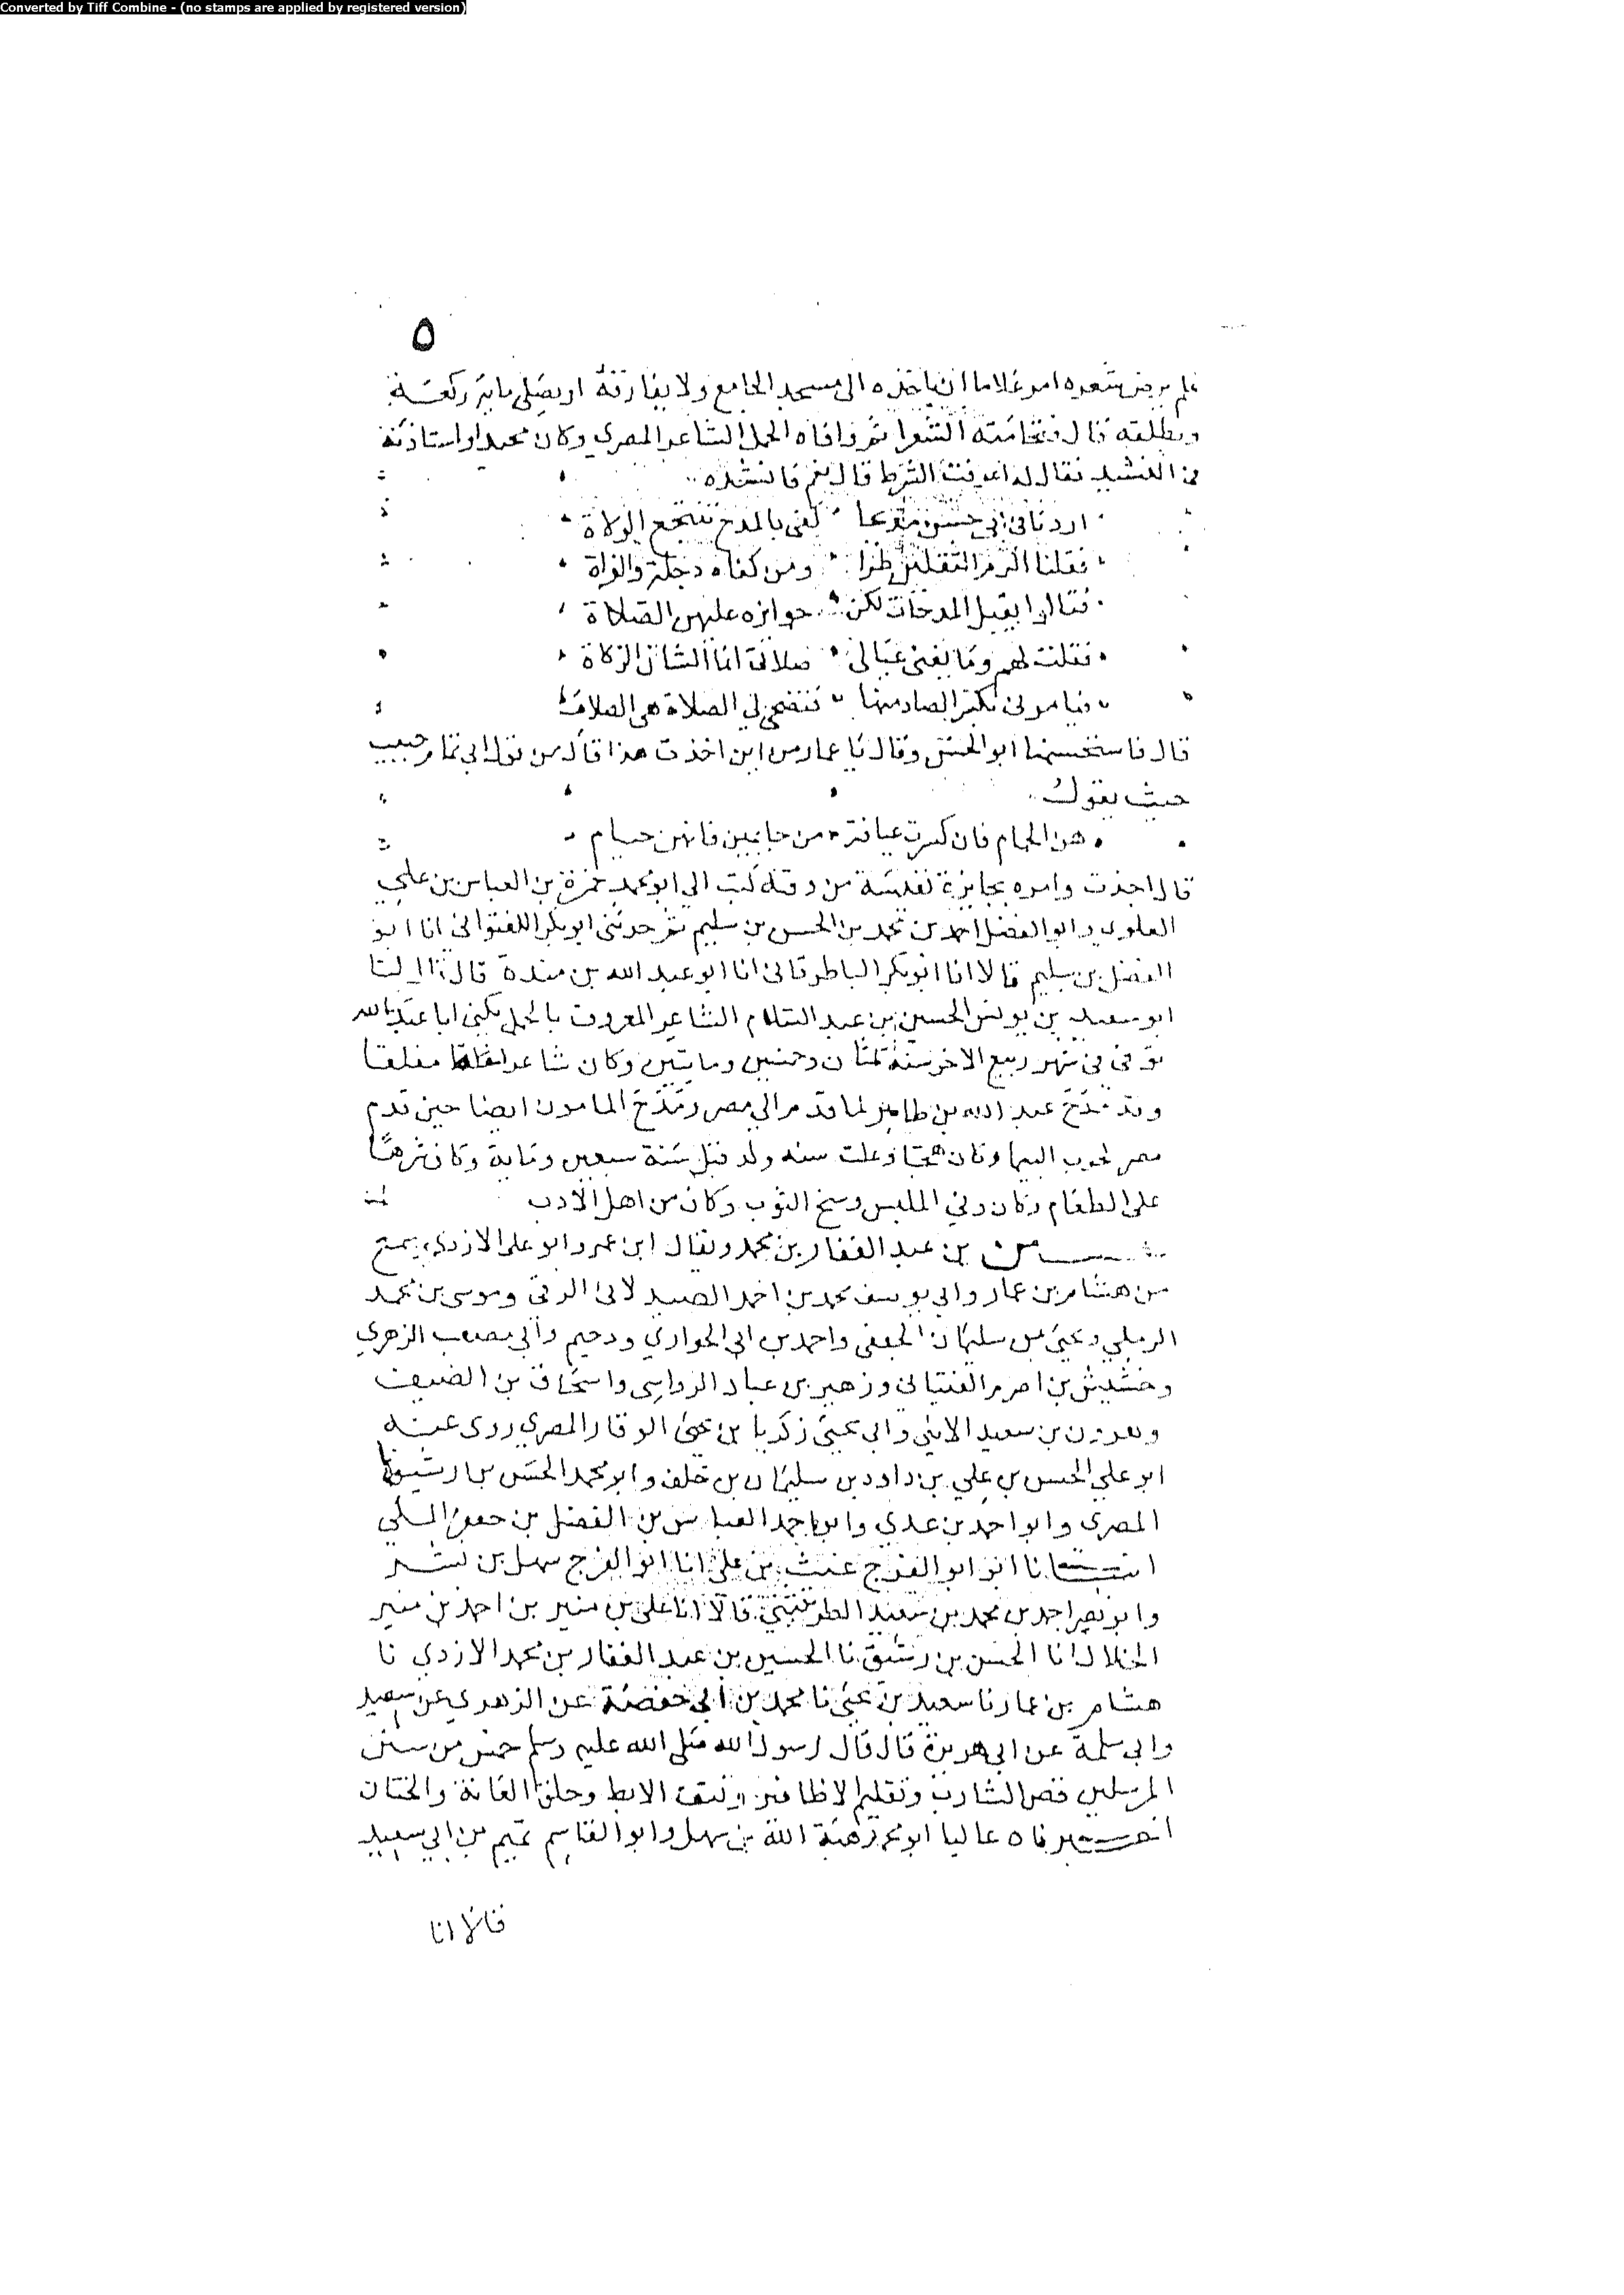 Converted by Tiff Combine - (no stamps are applied by registered version)
٥
فلم يرض شعره امر غلاما ان ياخذه الى مسجد الجامع ولا يفارقه او يصلي ماية ركعة
ويطلقه قال فتحامته الشعرا ثم وافاه الجمل الشاعر المصري وكان مجيدا واستاذنه
في النشيد فقال له اعرفت الشرط قال نعم فانشده
اردنا في ابي حسن مديحا كفى بالمدح تنتجع الولاة
فقلنا اكرم الثقلين طرا ومن كفاه دجلة والفراة
فقالوا يقبل المدحات لكن جوايزه عليهن الصلاة
فقلت لهم وما يغني عيالي صلاتي انما الشان الزكاة
فيامر لي بكسر الصاد منها فتضحي لي الصلاة هي الصلات
قال فاستحسنها ابو الحسن وقال يا عمار من اين اخذت هذا قال من قول ابي تمام حبيب
حيث يقول
هن الحمام فان كسرت عيافة من حايهن فانهن حمام
قال اجدت وامره بجايزة نفيسة من وقته كتب الي ابو محمد حمزة بن العباس بن علي
العلوي وابو الفضل احمد بن محمد بن الحسن بن سليم ثم حدثني ابو بكر اللفتواني انا ابو
الفضل بن سليم قالا انا ابو بكر الباطرقاني انا ابو عبد الله بن مندة قال قال لنا
ابو سعيد بن يونس الحسين بن عبد السلام الشاعر المعروف بالجمل يكنى ابا عبد الله
توفي في شهر ربيع الاخر سنة ثمان وخمسين ومايتين وكان شاعرا مفلقا
وقد مدح عبد الله بن طاهر لما قدم الى مصر ومدح المامون ايضا حين قدم
مصر لحرب البيما وكان هجا وعلت سنه ولد قبل سنة سبعين وماية وكان شرها
على الطعام وكان دني الملبس وسخ الثوب وكان من اهل الادب
بن عبد الغفار بن محمد ويقال ابن عمرو ابو علي الازدي سمع
من هشام بن عمار وابي يوسف محمد بن احمد الصيدلاني الرقي وموسى بن محمد
الرملي ويحيى بن سليمان الجعفي واحمد بن ابي الحواري ودحيم وابي مصعب الزهري
وخشيش بن اصرم الفتياني وزهير بن عباد الرواسي واسحاق بن الضيف
وهارون بن سعيد الايلي وابي يحيى زكريا بن يحيى الوقار المصري روى عنه
ابو علي الحسن بن علي بن داود بن سليمان بن خلف وابو محمد الحسن بن رشيق
المصري وابو احمد بن عدي وابو احمد العباس بن الفضل بن جعفر المكي
انبانا ابو الفرج غيث بن علي انا ابو الفرج سهل بن بشر
وابو نصر احمد بن محمد بن سعيد الطريثيثي قالا انا علي بن منير بن احمد بن منير
الخلال انا الحسن بن رشيق نا الحسين بن عبد الغفار بن محمد الازدي نا
هشام بن عمار نا سعيد بن يحيى نا محمد بن ابي حفصة عن الزهري عن سعيد
وابي سلمة عن ابي هريرة قال قال رسول الله صلى الله عليه وسلم خمس من سنن
المرسلين قص الشارب وتقليم الاظافير ونتف الابط وحلق العانة والختان
اخبرناه عاليا ابو محمد هبة الله بن سهل وابو القاسم تميم بن ابي سعيد
قالا انا